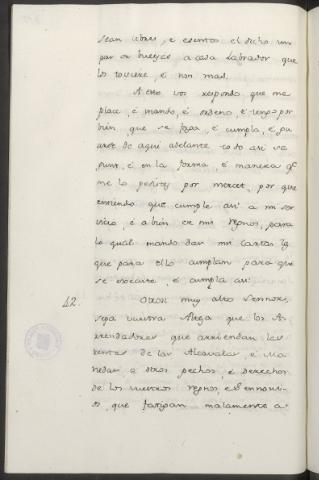 sean libres, e esentos el dicho un
par de bueyes a cada labrador que
los toviere, e non mas.
A esto vos respondo que me
place, e mando, e ordeno, e tengo por
bien que se faga, e cumpla, e
de aqui adelante todo asi se
e en la forma, e manera q.e
me lo pedis por merced, por que
entiendo que cumple asi a mi ser
vicio, e a bien de mis regnos, para
lo qual mando dar mis Cartas
que para ello cumplan para que
se esecute, e cumpla asi.
42. Otrosi muy alto Sennor,
sepa vuestra Alteza que los Ar
rendadores que arriendan las
rentas de las Alcavalas, e Mo
nedas, e otros pechos, e derechos
de los vuestros regnos, e Sennori
os, que fatigan malamente a